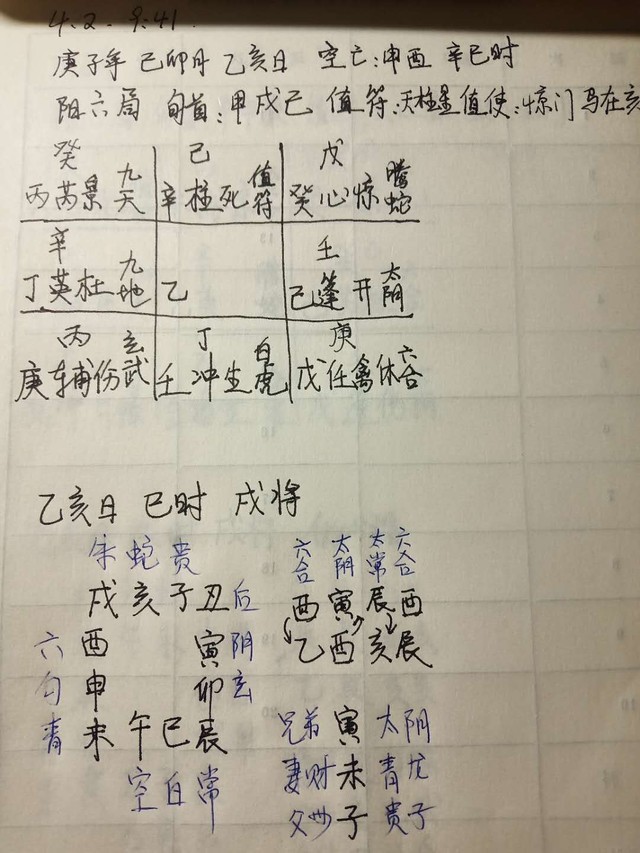 4.2. 9:41.
庚子年 己卯月 乙亥日 空亡:申酉 辛巳时
阳六局 旬首:甲戌己 值符:天柱星 值使:惊门 马在亥
癸 己 戊
丙芮景九天 辛柱死值符 癸心惊螣蛇
辛 壬
丁英杜九地 乙 己蓬开太阴
丙 丁 庚
庚辅伤玄武 壬冲生白虎 戊任禽休六合
乙亥日 巳时 戌将
朱蛇贵 六合 太阴 太常 六合
戌亥子丑后 酉寅辰酉
六酉 寅阴 乙酉亥辰
勾申 卯玄
青未午巳辰 兄弟寅太阴
空白常 妻财未青龙
父母子贵子